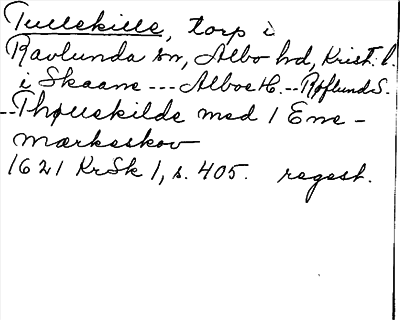 Tullekille, torp i
Ravlunda sn, Albo hd, Krist. l.
i Skaane --- Alboe H. -- Røflund S.
-- Thøllekilde med 1 Eme-
markeskov
1621 KrSk 1, s. 405. regest.